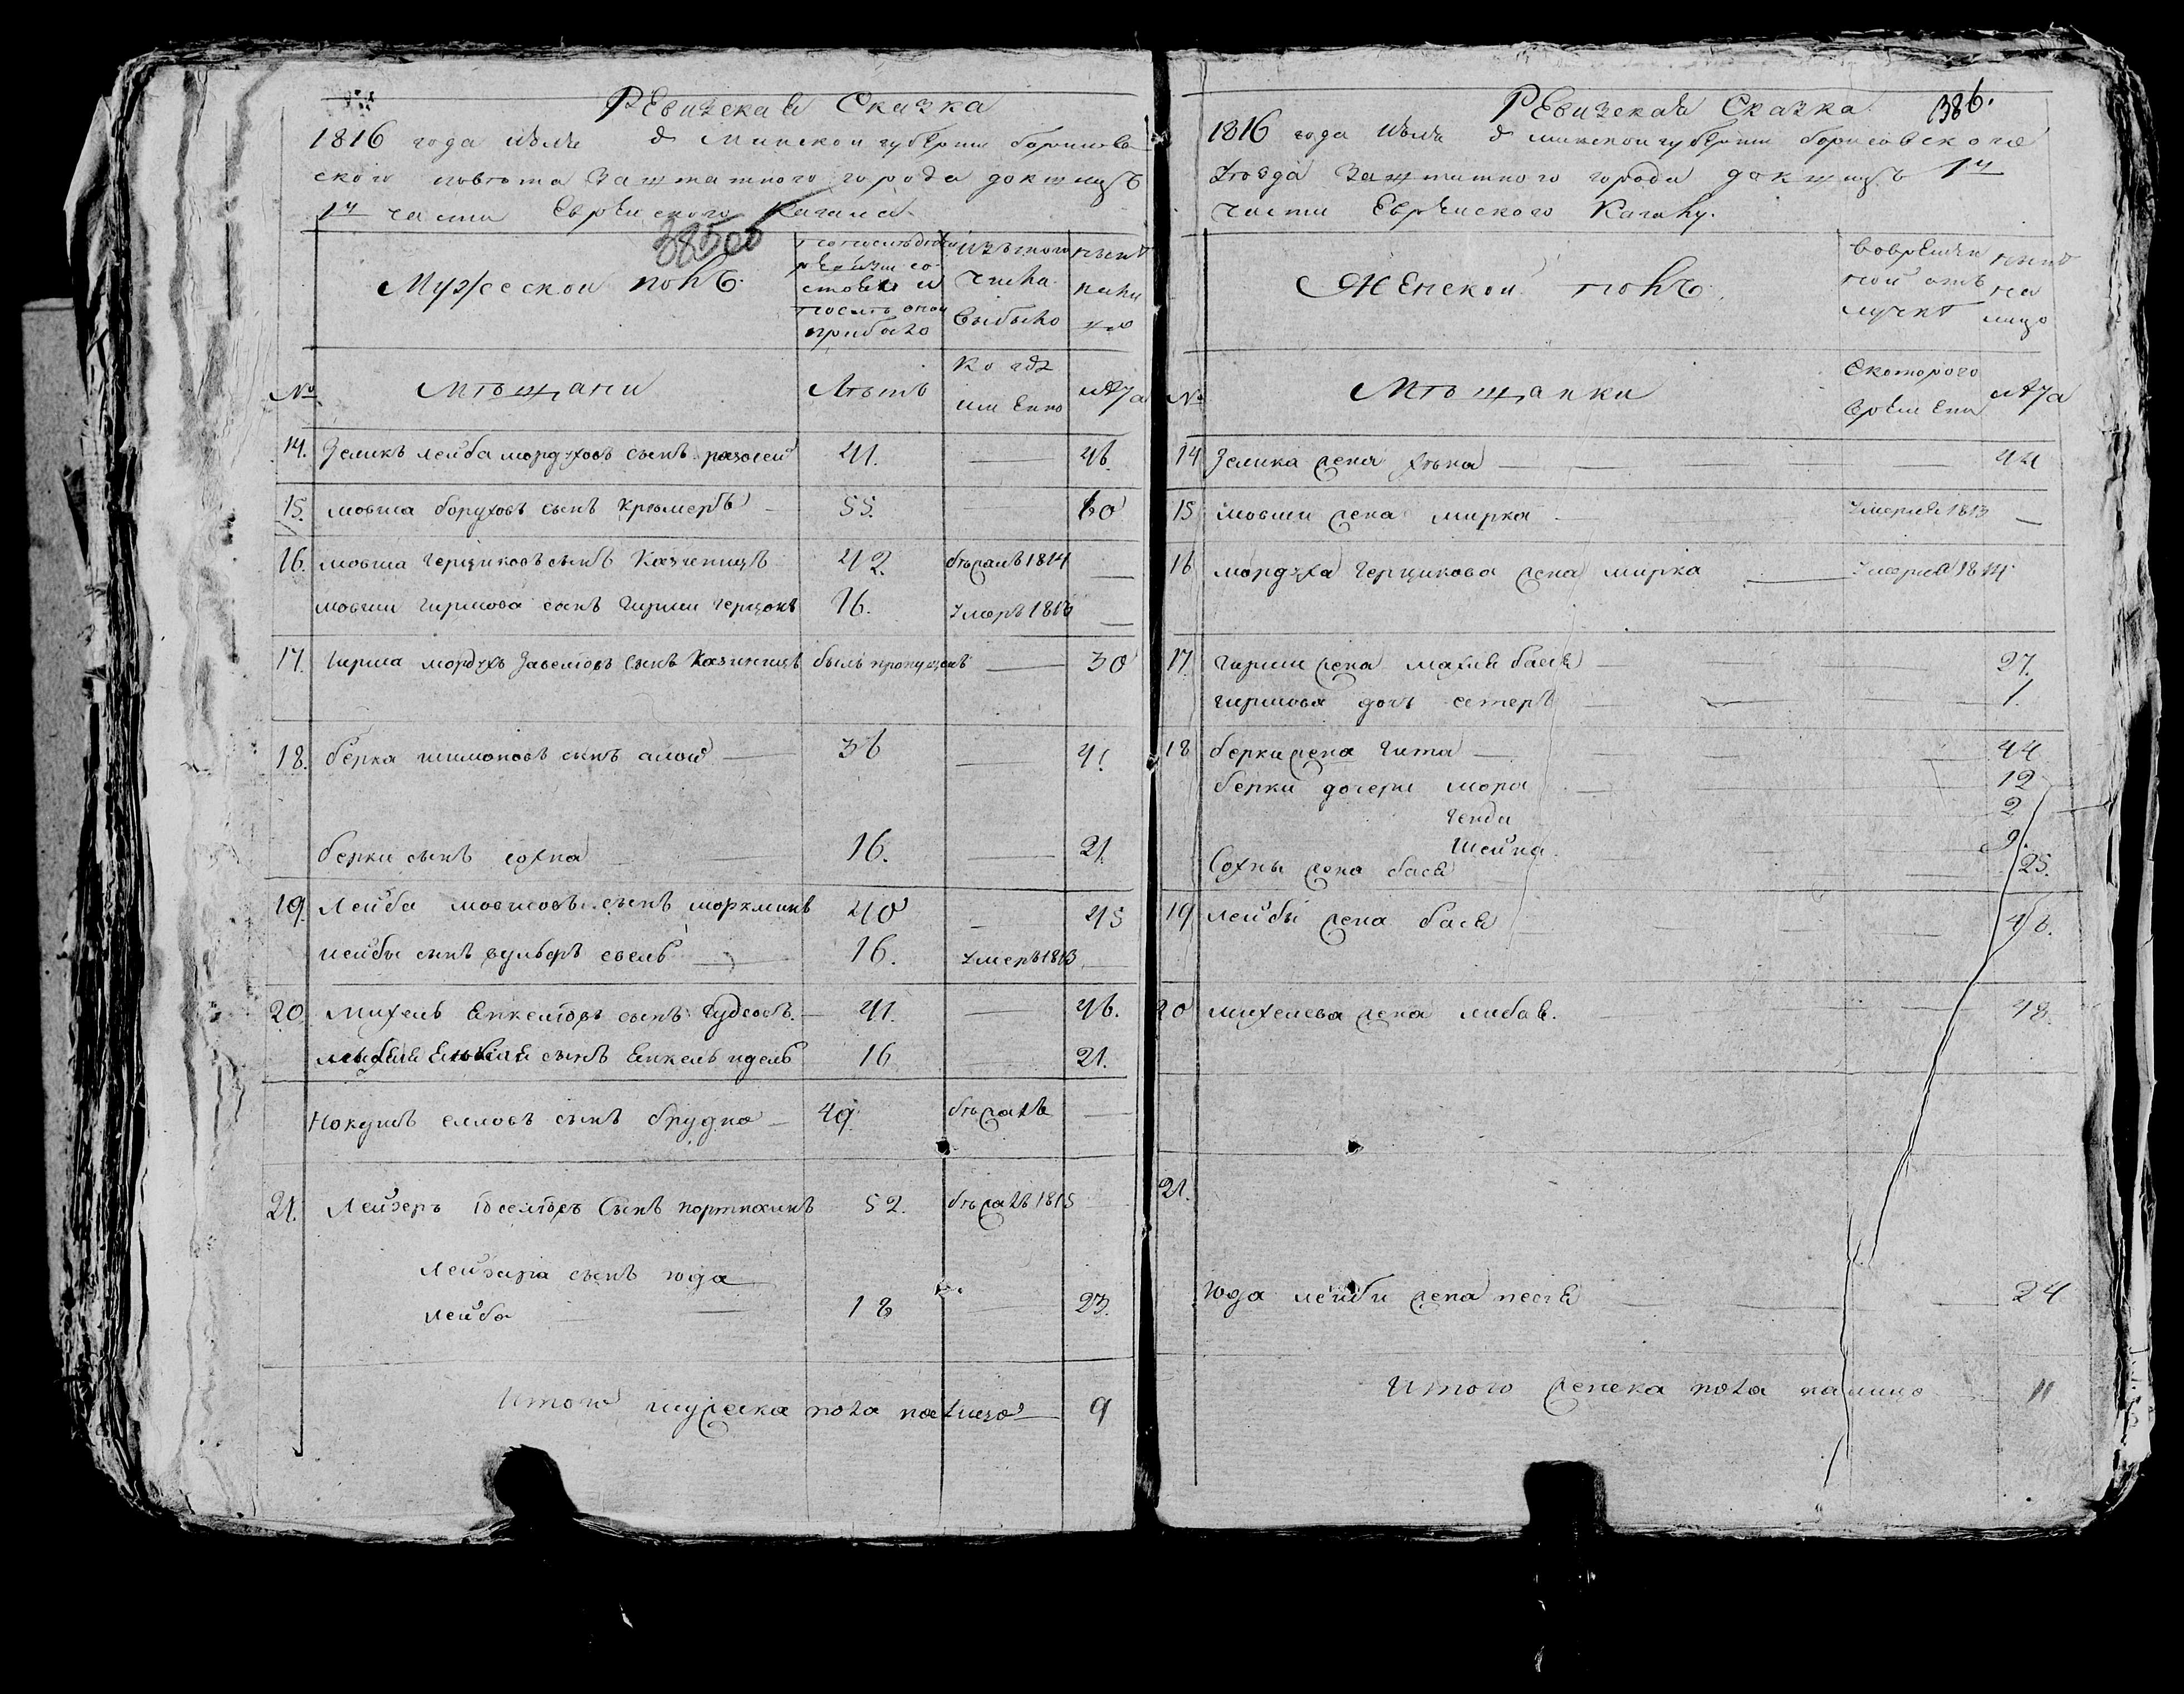 Ревизская Сказка
1816 года Июля д Минской губернии борисов
ского повѣта Заштатного города докшицъ
1й части Еврейского Кагала
385об
Мужеской полъ
попоследней ревизии состояло и послѣ оной прибыло
изъ того числа выбыло
ныне на лицо
№ Мѣщани Лѣтъ Когда именно лѣта
14. Зеликъ лейба мордухов сынъ 41. — 46.
15. мовша борухов сынъ Крѣмеръ 55. 60
16. мовша герциковъ сынъ Казинецъ 42. бѣжалъ 1814 —
мовши гиршова сынъ гирша герцокъ 16. Умеръ 1813 —
17. гирша мордухъ Завелювъ сынъ Казинецъ былъ пропущенъ — 30
18. берка шимоновъ сынъ — 36 — 41
берки сынъ сохна 16. — 21.
19. Лейба мовшовъ сынъ 40 — 45
лейбы сынъ вульфъ евель 16. Умеръ 1813 —
20. михель Енкелювъ сынъ — 41. — 46.
сынъ Енкель идель 16 21.
еллювъ сынъ брудно — 49. бѣжалъ —
21. Лейзеръ Іоселювъ Сынъ портнягинъ 52. бѣжалъ 1815
Лейзера сынъ юда
лейба 18 — 23.
Итого мужеска пола налицо 9
Ревизская Сказка 386.
1816 года Июля д минской губернии борисовского
Уѣзда Заштатного города докшицъ 1й
части Еврейского Кагалу.
Женской полъ
вовременной отлучкѣ
ныне на лицо
№ Мѣщанки Скоторого времени лѣта
14 Зелика жена хѣна — 44
15 мовши жена мирка — Умерла 1813 —
16 мордуха герцикова жена мирка — Умерла 1814
17. гирши жена бася — 27.
гиршова дочь естеръ — 1.
18 берки жена гита — 44
берки дочери мора — 12
генда 2
Шейна 9.
Сохны жена бася 25.
19 лейбы жена бася 46.
20 михелева жена либа — 48.
21.
юда лейби жена песя — 24
Итого женска пола налицо 11